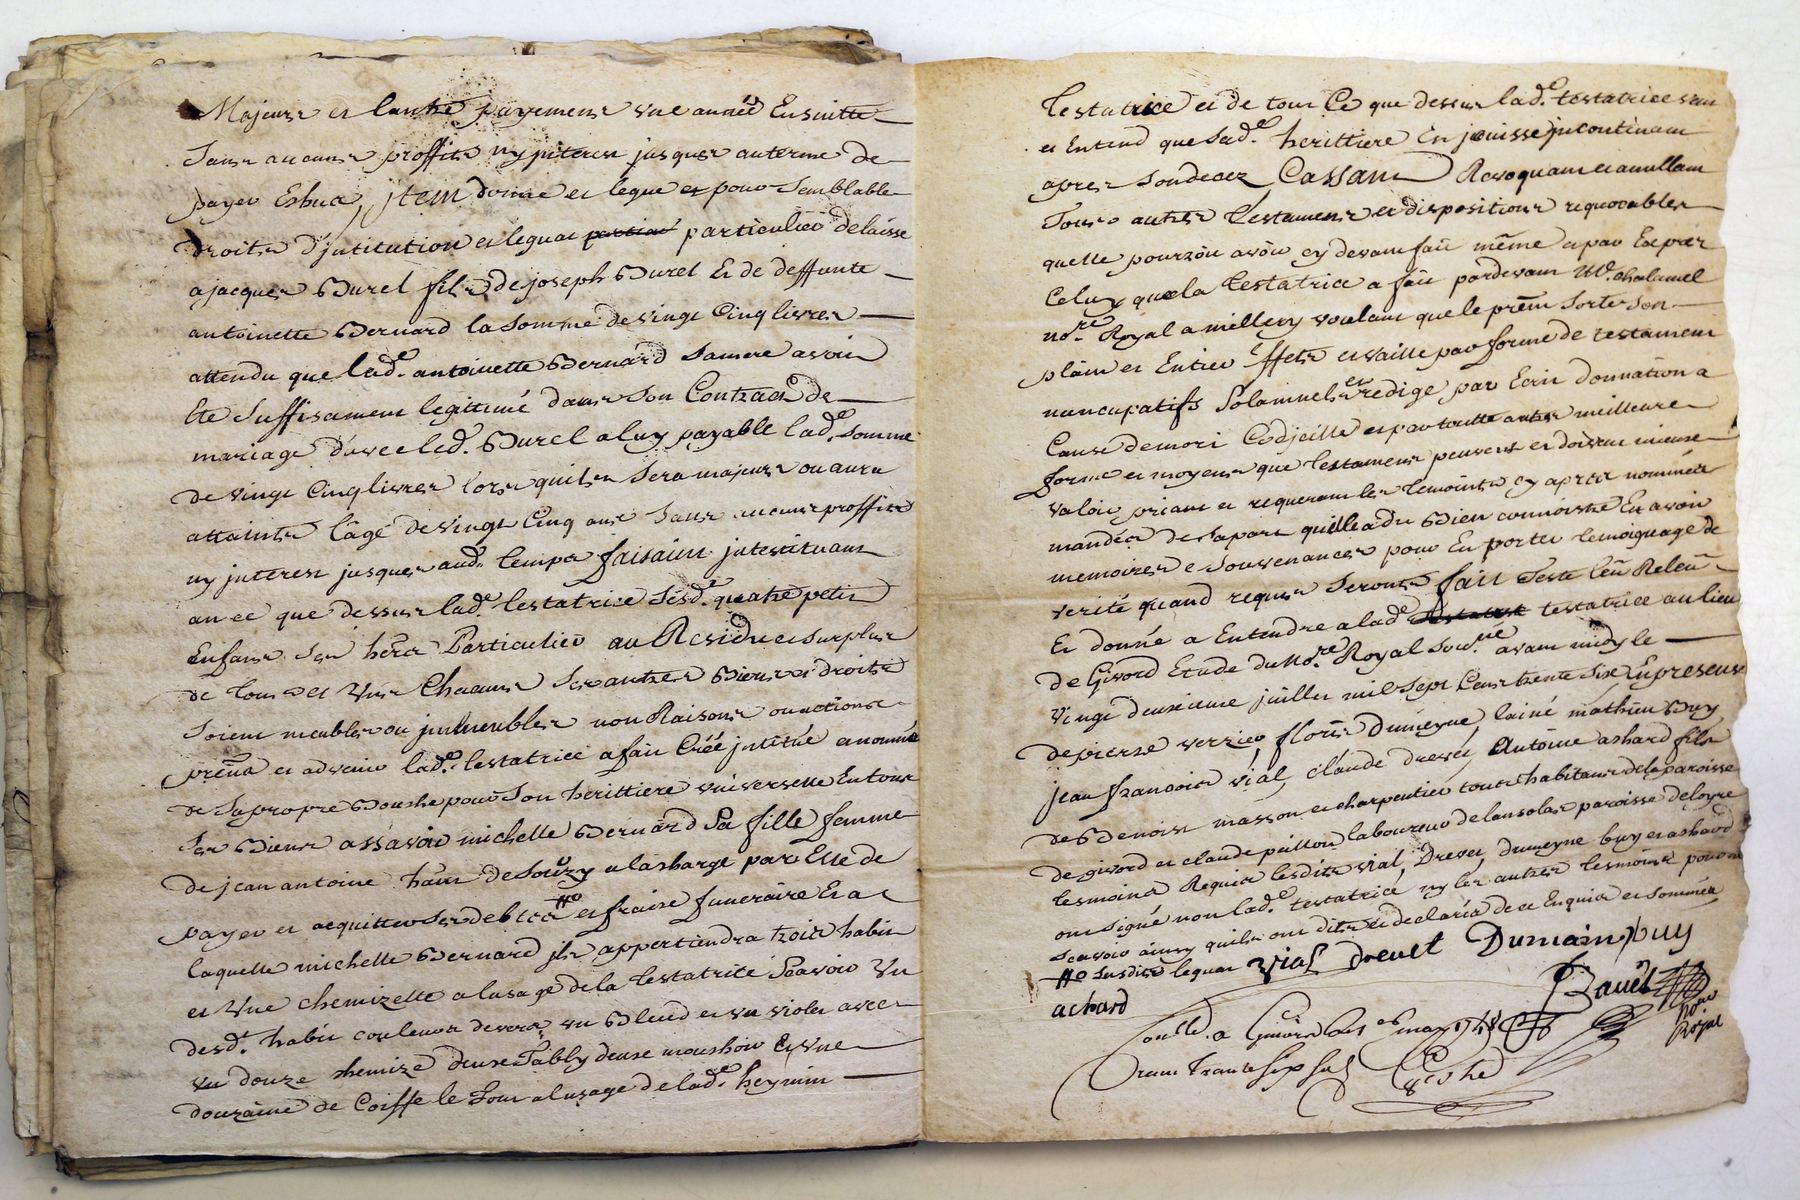 Majeurs et lautre payement une année Ensuitte
Sans aucuns proffits ny jnterest jusques auterme de
payer Eshua, jtem donne et legue et pour Semblable
droits d'jntitution et leguat partiat particulier delaisse
a jacques Burel fils de joseph Burel Et de deffunte
antoinette Bernard la somme de vingt Cinq livres
attendu que lad.e antoinette Bernard Samere avoir
Ete Suffisament legitimé dans son Contract de
mariage d'avec led. Burel aluy payable lad.e Somme
de vingt Cinq livres lors quil Sera majeurs ou aura
attaints l'âge de vingt Cinq ans Sans aucuns proffits
ny jnterest jusques aud. temps faisant jnstituant
an ce que dessus lad.e testatrice Sesd.e quatre petit
Enfans Ses hers Particulier au Residu et surplus
de tous et Uns Chacuns Ses autres Biens et droits
Soient meubles ou jmmeubles nom Raisons ou actions
prens et advenir lad.e testatrice a fait Créé jntitué anommé
de Sapropre Bouche pour Son herittiere universelle En tous
Ses Biens assavoir michelle Bernard Sa fille femme
de jean antoine ham de Souzy a lacharge par Elle de
payer et acquitter Ses debtes et fraits funeraire Et a
laquelle michelle Bernard jl appertiendra trois habit
et Une chemizette a lusage de la testatrice Scavoir Un
desd. habit couleur de vers un Bleud et un violet avec
un douze chemize deux Tably deux mouchoir Et Une
douzaine de Coiffe le Tout alusage de lad.e heymin
testatrice et de tout Ce que dessus lad.e testatrice veut
et Entend que Sad.e herittiere En jouisse jncontinant
apres Son decez Cassant Revoquant et anullant
Tous autres testaments et dispositions revocables
quelle pourroit avoir cy devant fait même apar Expres
Celuy que la testatrice a fait pardevant M.e chalamel
no.re Royal a millery voulant que le prent Sorte Son
plain et Entier Effets et vaille par forme de testament
nuncupatifs Solamnel et redigé par Ecrit donnation a
Cause de mort Codjcille et par toutte autre meilleure
forme et moyens que testaments peuvent et doivent mieux
valoir priant et requerant les temoints cy apres nommés
mandés de Sa part quelle a dit Bien connoistre En avoir
memoires & souvenances pour En porter temoignage de
verité quand requis Seronts fait Testé leu Releu
Et donné a Entendre a lad.e testatrice au lieu
de Givord Etude du No.re Royal Sou.né avant midy le
vingt deuxieme juillet mil Sept Cent trente Six En presence
de pierre verzier, floris Dumeyne, lainé mathieu Buy
jean francois vial, claude drevet, Antoine achard fils
de Benoist masson et charpentier tous habitans de la paroisse
de givord et claude paillou laboureur de lansolas paroisse de loyre
tesmoins Requis lesdits vial, Drevet, dumeyne buy et achard
ont signé non lad.e testatrice ny les autres tesmoins pour ne
scavoir ainsy quils ont dit et declarés de ce Enquis et sommés
susdits leguat Vial Drevet Dumain buy
achard
Bauët
no.re
Royal
Con.llé a Givors le 1.er may 1748
recu trante six sol